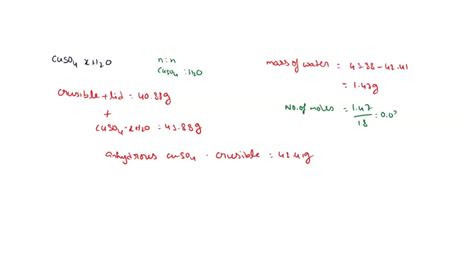 CuSO4 xH2O
n : n
CuSO4 : H2O
crusible + lid = 40.88g
+
CuSO4·xH2O = 43.88g
anhydrous CuSO4 · crusible = 42.41g
mass of water = 43.88 - 42.41
= 1.47g
No. of moles = 1.47/18 = 0.0